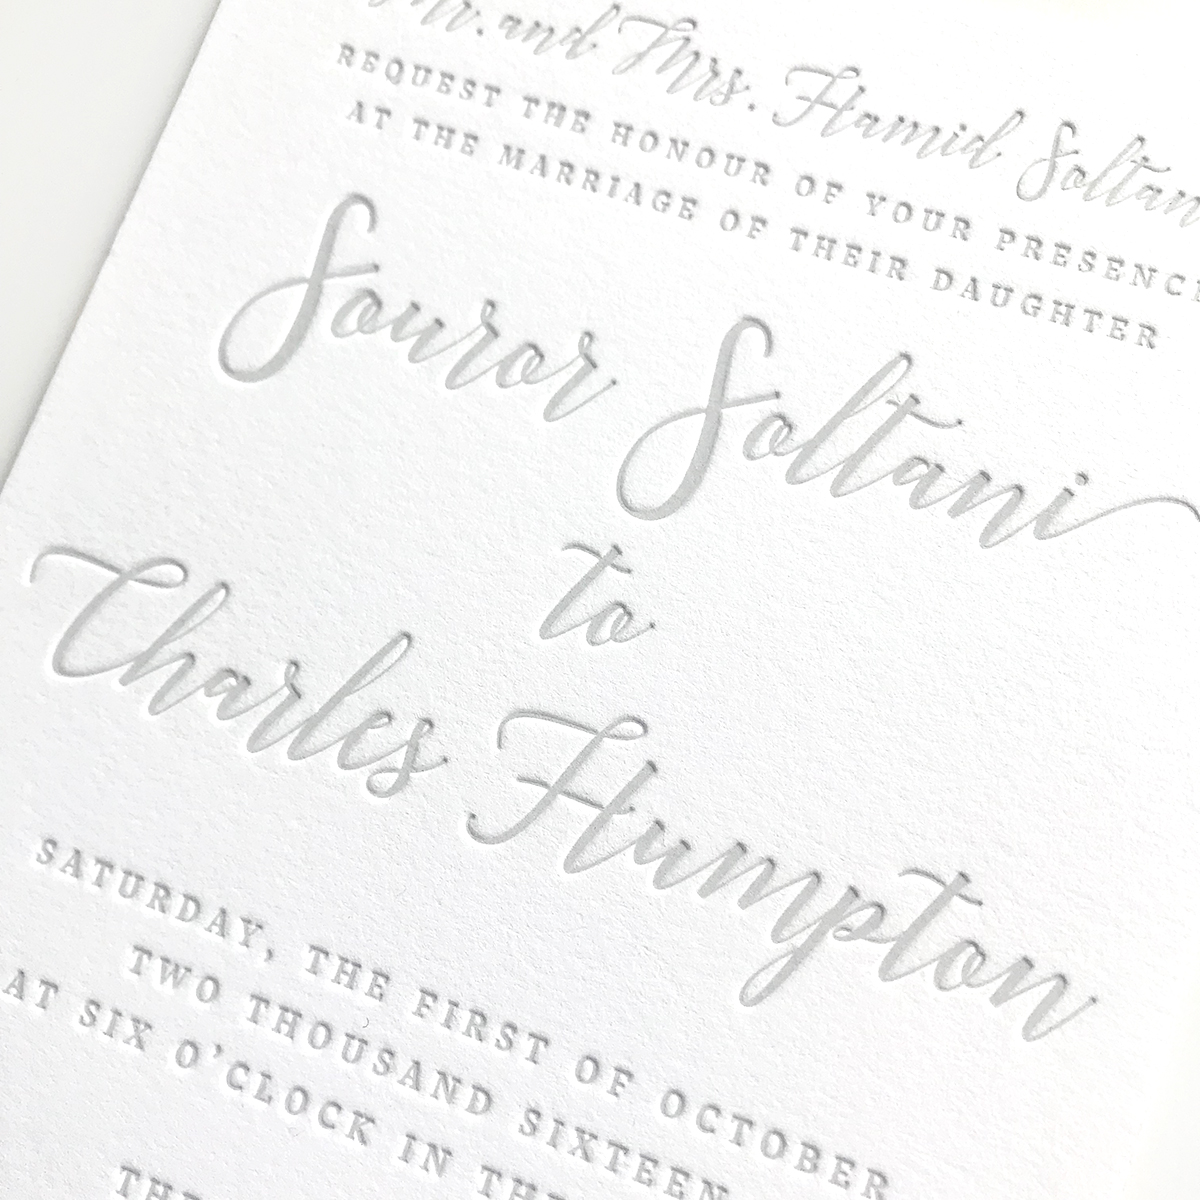 Mr. and Mrs. Hamid Soltan
REQUEST THE HONOUR OF YOUR PRESENCE
AT THE MARRIAGE OF THEIR DAUGHTER
Souror Soltani
to
Charles Humpton
SATURDAY, THE FIRST OF OCTOBER
TWO THOUSAND SIXTEEN
AT SIX O'CLOCK IN THE
THE